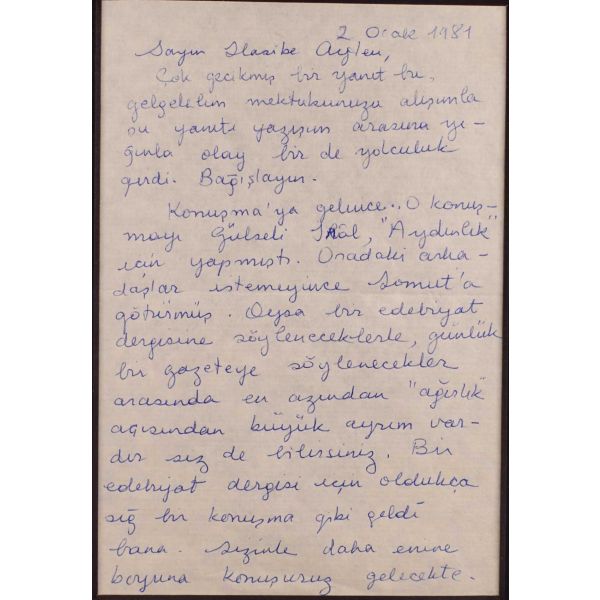 2 Ocak 1981
Sayın Hasibe Ayten,
Çok gecikmiş bir yanıt bu,
gelgelelim mektubunuzu alışımla
şu yanıtı yazışım arasına yı-
ğınla olay bir de yolculuk
girdi. Bağışlayın.
Konuşma'ya gelince.. O konuş-
mayı Gülseli İnal, "Aydınlık"
için yapmıştı. Oradaki arka-
daşlar istemeyince Somut'a
götürmüş. Oysa bir edebiyat
dergisine söyleneceklerle, günlük
bir gazeteye söylenecekler
arasında en azından "ağırlık"
açısından büyük ayrım var-
dır siz de bilirsiniz. Bir
edebiyat dergisi için oldukça
sığ bir konuşma gibi geldi
bana. Sizinle daha enine
boyuna konuşuruz gelecekte.